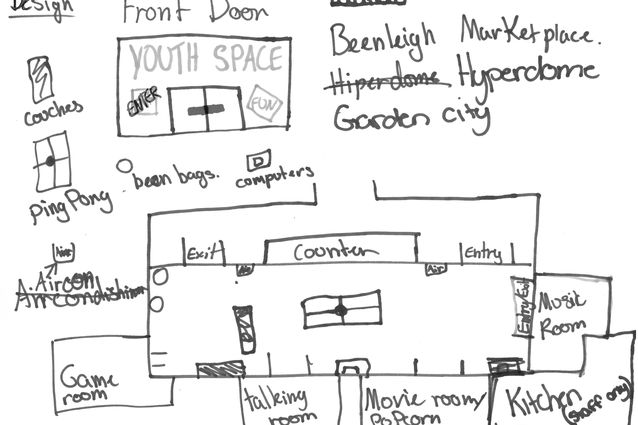 Design
Front Door
YOUTH SPACE
ENTER
FUN
Beenleigh Marketplace.
Hiperdome Hyperdome
Garden city
couches
Ping Pong
bean bags.
D
computers
Air
Aircon
Exit
Counter
Entry
Air
Air
Entry/Exit
Music
Room
Game
room
talking
room
Movie room/
Popcorn
Kitchen
(staff only)